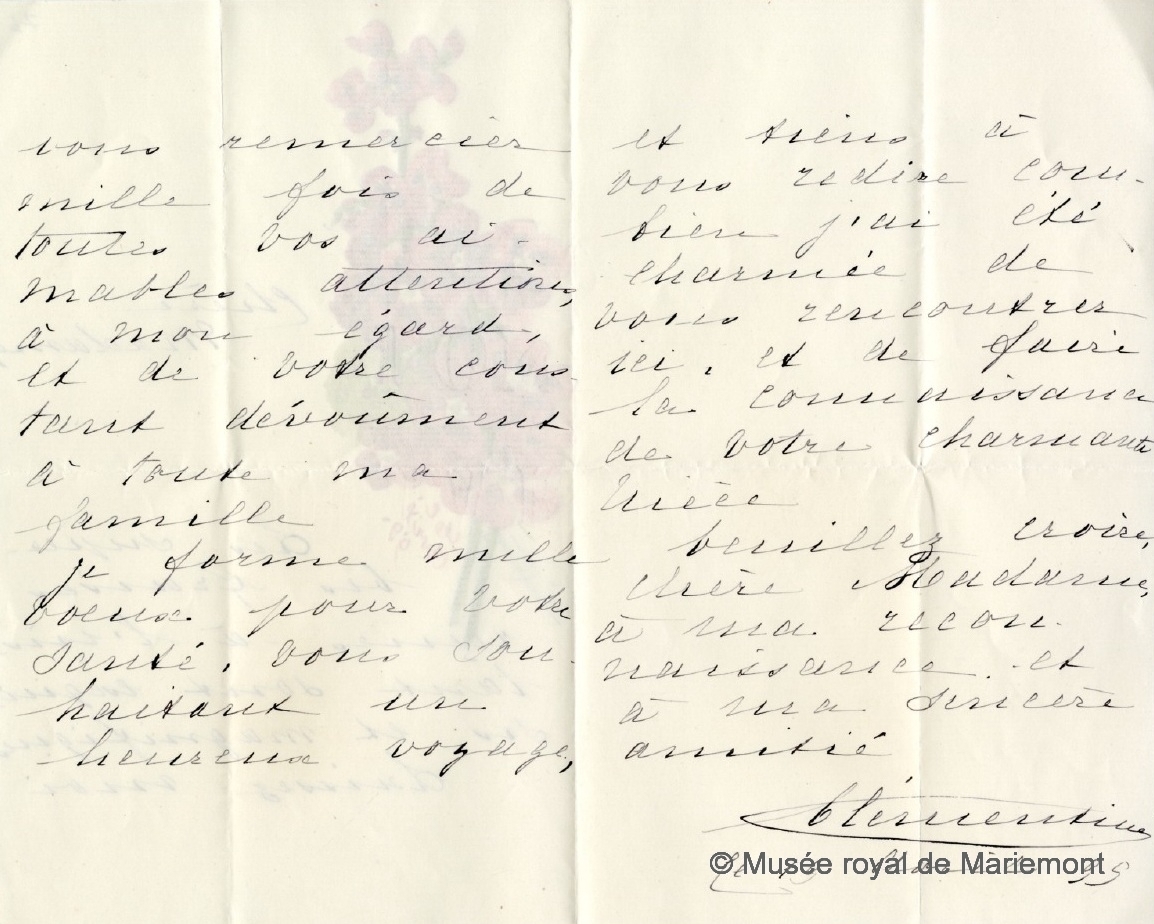 vous remercier
mille fois de
toutes vos ai-
mables attentions,
à mon égard,
et de votre cons-
tant dévoûment
à toute ma
famille
je forme mille
voeux pour votre
santé, vous sou-
haitant un
heureux voyage,
et tiens à
vous redire com-
bien j'ai été
charmée de
vous rencontrer
ici, et de faire
la connaissance
de votre charmante
nièce
veuillez croire,
chère Madame,
à ma recon-
naissance et
à ma sincère
amitié
Clémentine
© Musée royal de Mariemont